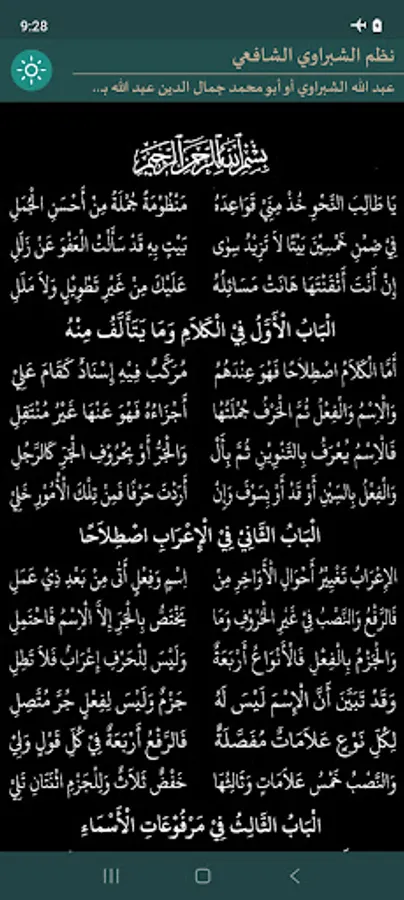 9:28
نظم الشبراوي الشافعي
عبد الله الشبراوي أو أبو محمد جمال الدين عبد الله بـ...
بِسْمِ ٱللَّهِ ٱلرَّحْمَٰنِ ٱلرَّحِيمِ
يَا طَالِبَ النَّحْوِ خُذْ مِنِّي قَوَاعِدَهُ مَنْظُومَةً جُمْلَةً مِنْ أَحْسَنِ الْجُمَلِ
فِي ضِمْنِ خَمْسِينَ بَيْتًا لَا تَزِيدُ سِوَى بَيْتٍ بِهِ قَدْ سَأَلْتُ الْعَفْوَ عَنْ زَلَلِي
إِنْ أَنْتَ أَتْقَنْتَهَا هَانَتْ مَسَائِلُهُ عَلَيْكَ مِنْ غَيْرِ تَطْوِيلٍ وَلَا مَلَلِ
الْبَابُ الْأَوَّلُ فِي الْكَلَامِ وَمَا يَتَأَلَّفُ مِنْهُ
أَمَّا الْكَلَامُ اصْطِلَاحًا فَهْوَ عِنْدَهُمُ مُرَكَّبٌ فِيهِ إِسْنَادٌ كَقَامَ عَلِي
وَالْاِسْمُ وَالْفِعْلُ ثُمَّ الْحَرْفُ جُمْلَتُهَا أَجْزَاءُهُ فَهْوَ عَنْهَا غَيْرُ مُنْتَقِلِ
فَالْاِسْمُ يُعْرَفُ بِالتَّنْوِينِ ثُمَّ بِأَلْ وَالْجَرِّ أَوْ بِحُرُوفِ الْجَرِّ كَالرَّجُلِ
وَالْفِعْلُ بِالسِّينِ أَوْ قَدْ أَوْ بِسَوْفَ وَإِنْ أَرَدْتَ حَرْفًا فَمِنْ تِلْكَ الْأُمُورِ خَلِي
الْبَابُ الثَّانِي فِي الْإِعْرَابِ اصْطِلَاحًا
الْإِعْرَابُ تَغْيِيرُ أَحْوَالِ الْأَوَاخِرِ مِنْ اِسْمٍ وَفِعْلٍ أَتَى مِنْ بَعْدِ ذِي عَمَلِ
فَالرَّفْعُ وَالنَّصْبُ فِي غَيْرِ الْحُرُوفِ وَمَا يَخْتَصُّ بِالْجَرِّ إِلَّا الْاِسْمُ فَاحْتَمِلِ
وَالْجَزْمُ بِالْفِعْلِ فَالْأَنْوَاعُ أَرْبَعَةٌ وَلَيْسَ لِلْحَرْفِ إِعْرَابٌ فَلَا تَطِلِ
وَقَدْ تَبَيَّنَ أَنَّ الْاِسْمَ لَيْسَ لَهُ جَزْمٌ وَلَيْسَ لِفِعْلٍ جَرُّ مُتَّصِلِ
لِكُلِّ نَوْعٍ عَلَامَاتٌ مُفَصَّلَةٌ فَالرَّفْعُ أَرْبَعَةٌ فِي كُلِّ قَوْلِ وَلِي
وَالنَّصْبُ خَمْسُ عَلَامَاتٍ وَثَالِثُهَا خَفْضٌ ثَلَاثٌ وَلِلْجَزْمِ اثْنَتَانِ تَلِي
الْبَابُ الثَّالِثُ فِي مَرْفُوعَاتِ الْأَسْمَاءِ